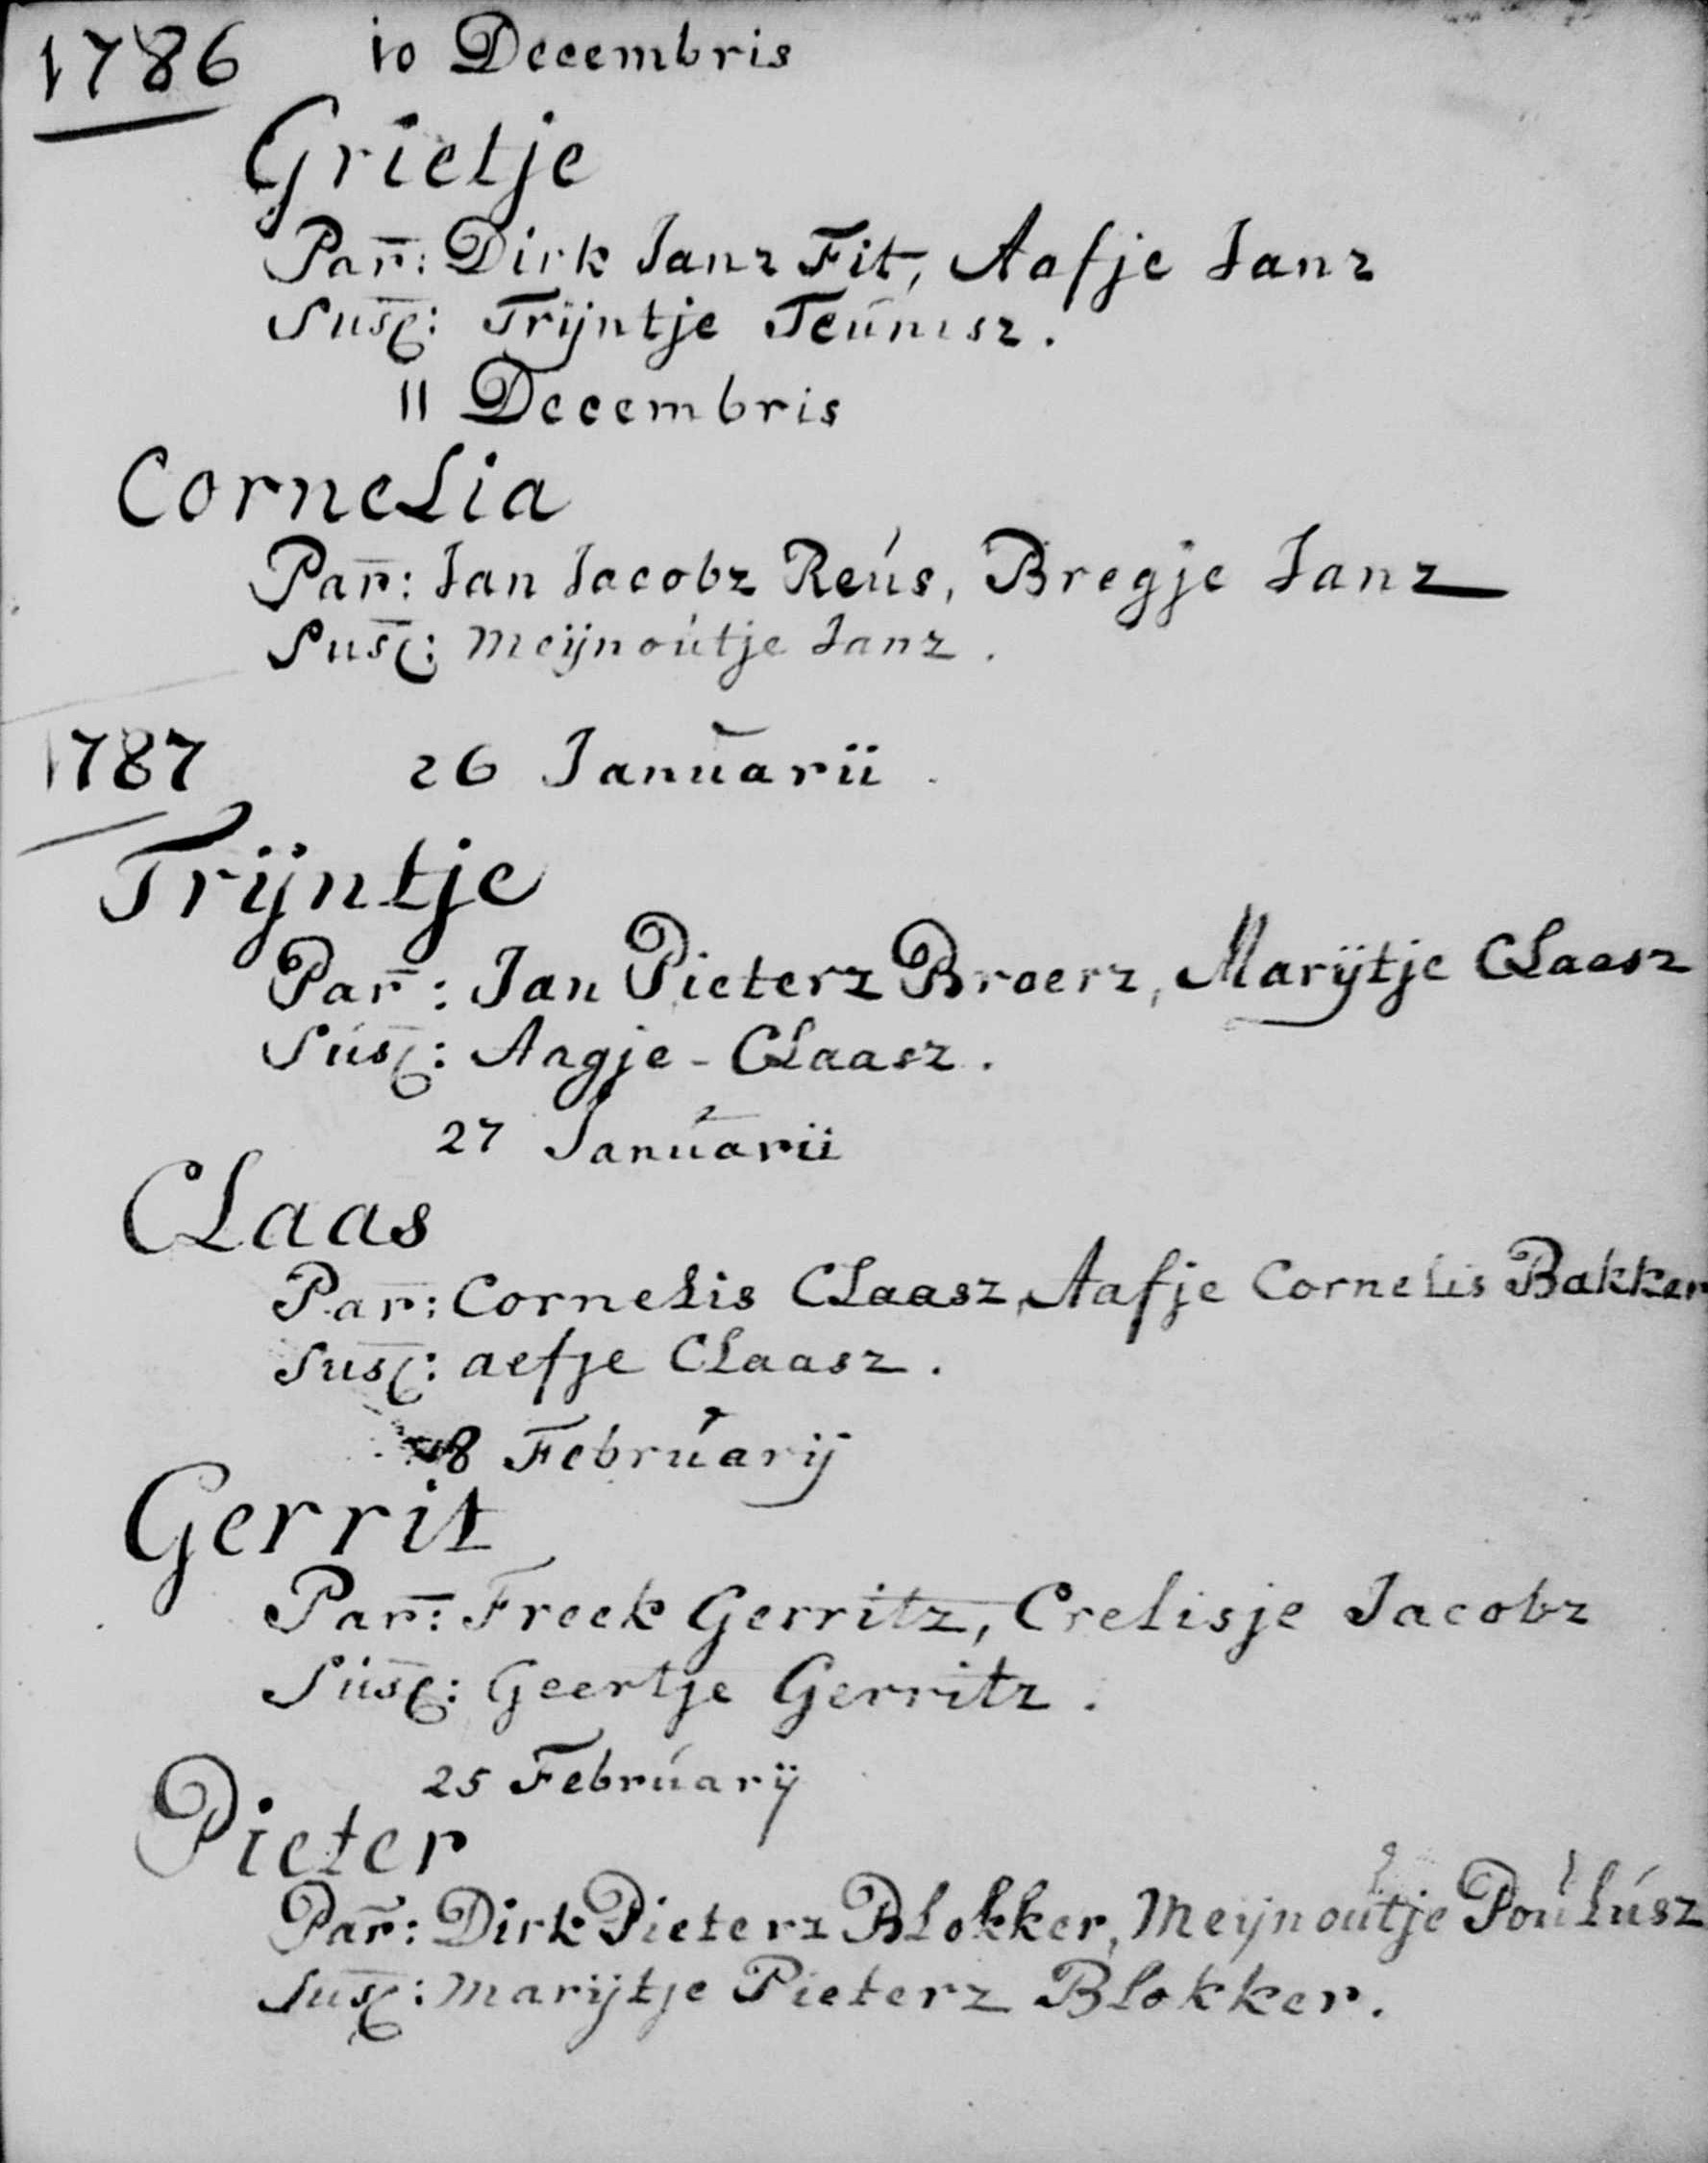 1786 10 Decembris
Grietje
Par: Dirk Janz Fit, Aafje Janz
Susc: Trijntje Teunisz.
11 Decembris
Cornelia
Par: Jan Jacobz Reús, Bregje Janz
Susc: Meijnoútje Janz.
1787 26 Januarii.
Trijntje
Par: Jan Pieterz Broerz, Marijtje Claasz
Susc: Aagje - Claasz.
27 Januarii
Claas
Par: Cornelis Claasz, Aafje Cornelis Bakker
Susc: aefje Claasz.
8 Februarij
Gerrit
Par: Freek Gerritz, Crelisje Jacobz
Susc: Geertje Gerritz.
25 Februarij
Pieter
Par: Dirk Pieterz Blokker, Meijnoutje Poulúsz
Susc: Marijtje Pieterz Blokker.